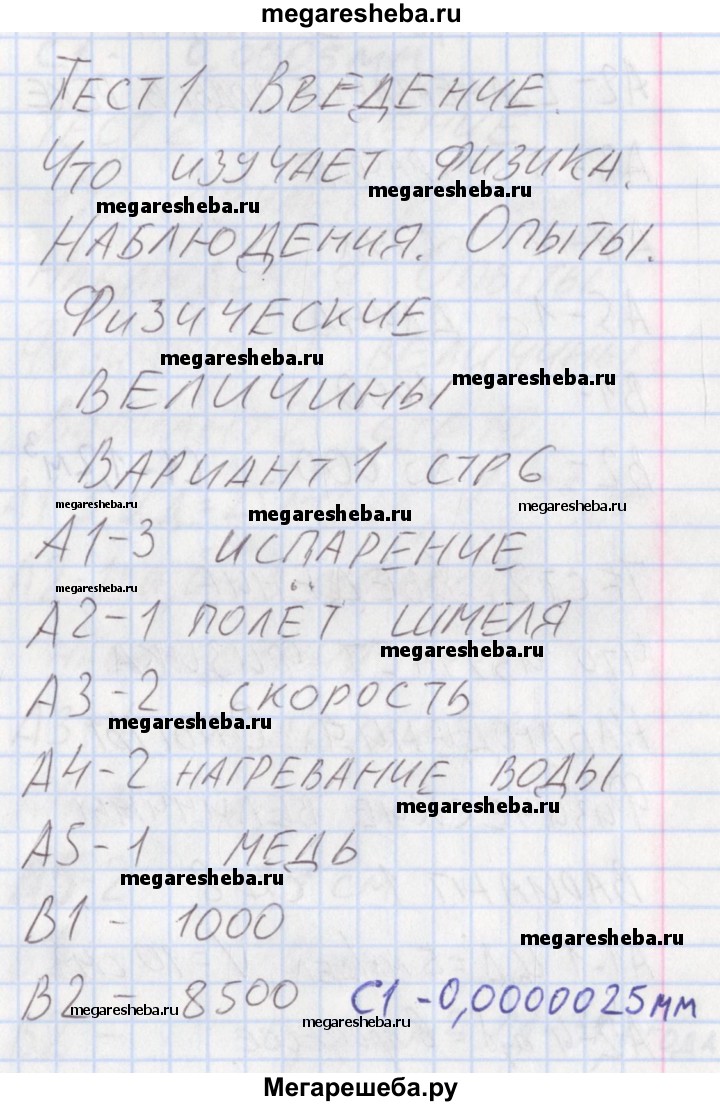 megaresheba.ru
Тест 1 Введение.
Что изучает физика.
megaresheba.ru
megaresheba.ru
Наблюдения. Опыты.
Физические
megaresheba.ru
megaresheba.ru
величины
Вариант 1 стр 6
megaresheba.ru
megaresheba.ru
megaresheba.ru
А1-3 испарение
megaresheba.ru
А2-1 полёт шмеля
megaresheba.ru
А3-2 скорость
megaresheba.ru
А4-2 нагревание воды
megaresheba.ru
А5-1 медь
megaresheba.ru
В1 - 1000
megaresheba.ru
В2 - 8500 С1 - 0,0000025 мм
megaresheba.ru
megaresheba.ru
Мегарешеба.ру